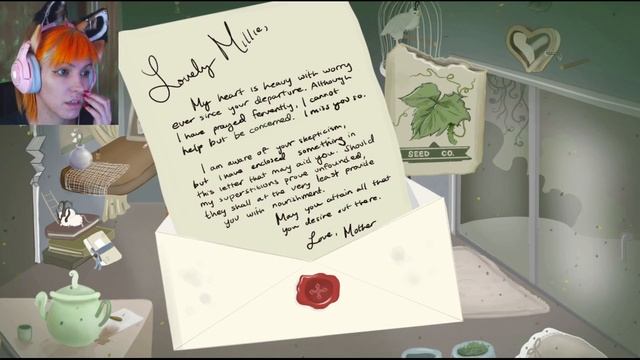 Lovely Millie,
My heart is heavy with worry
ever since your departure. Although
I have prayed fervently, I cannot
help but be concerned. I miss you so.
I am aware of your skepticism,
but I have enclosed something in
this letter that may aid you. Should
my superstitions prove unfounded,
they shall at the very least provide
you with nourishment.
May you attain all that
you desire out there.
Love, Mother
SEED CO.